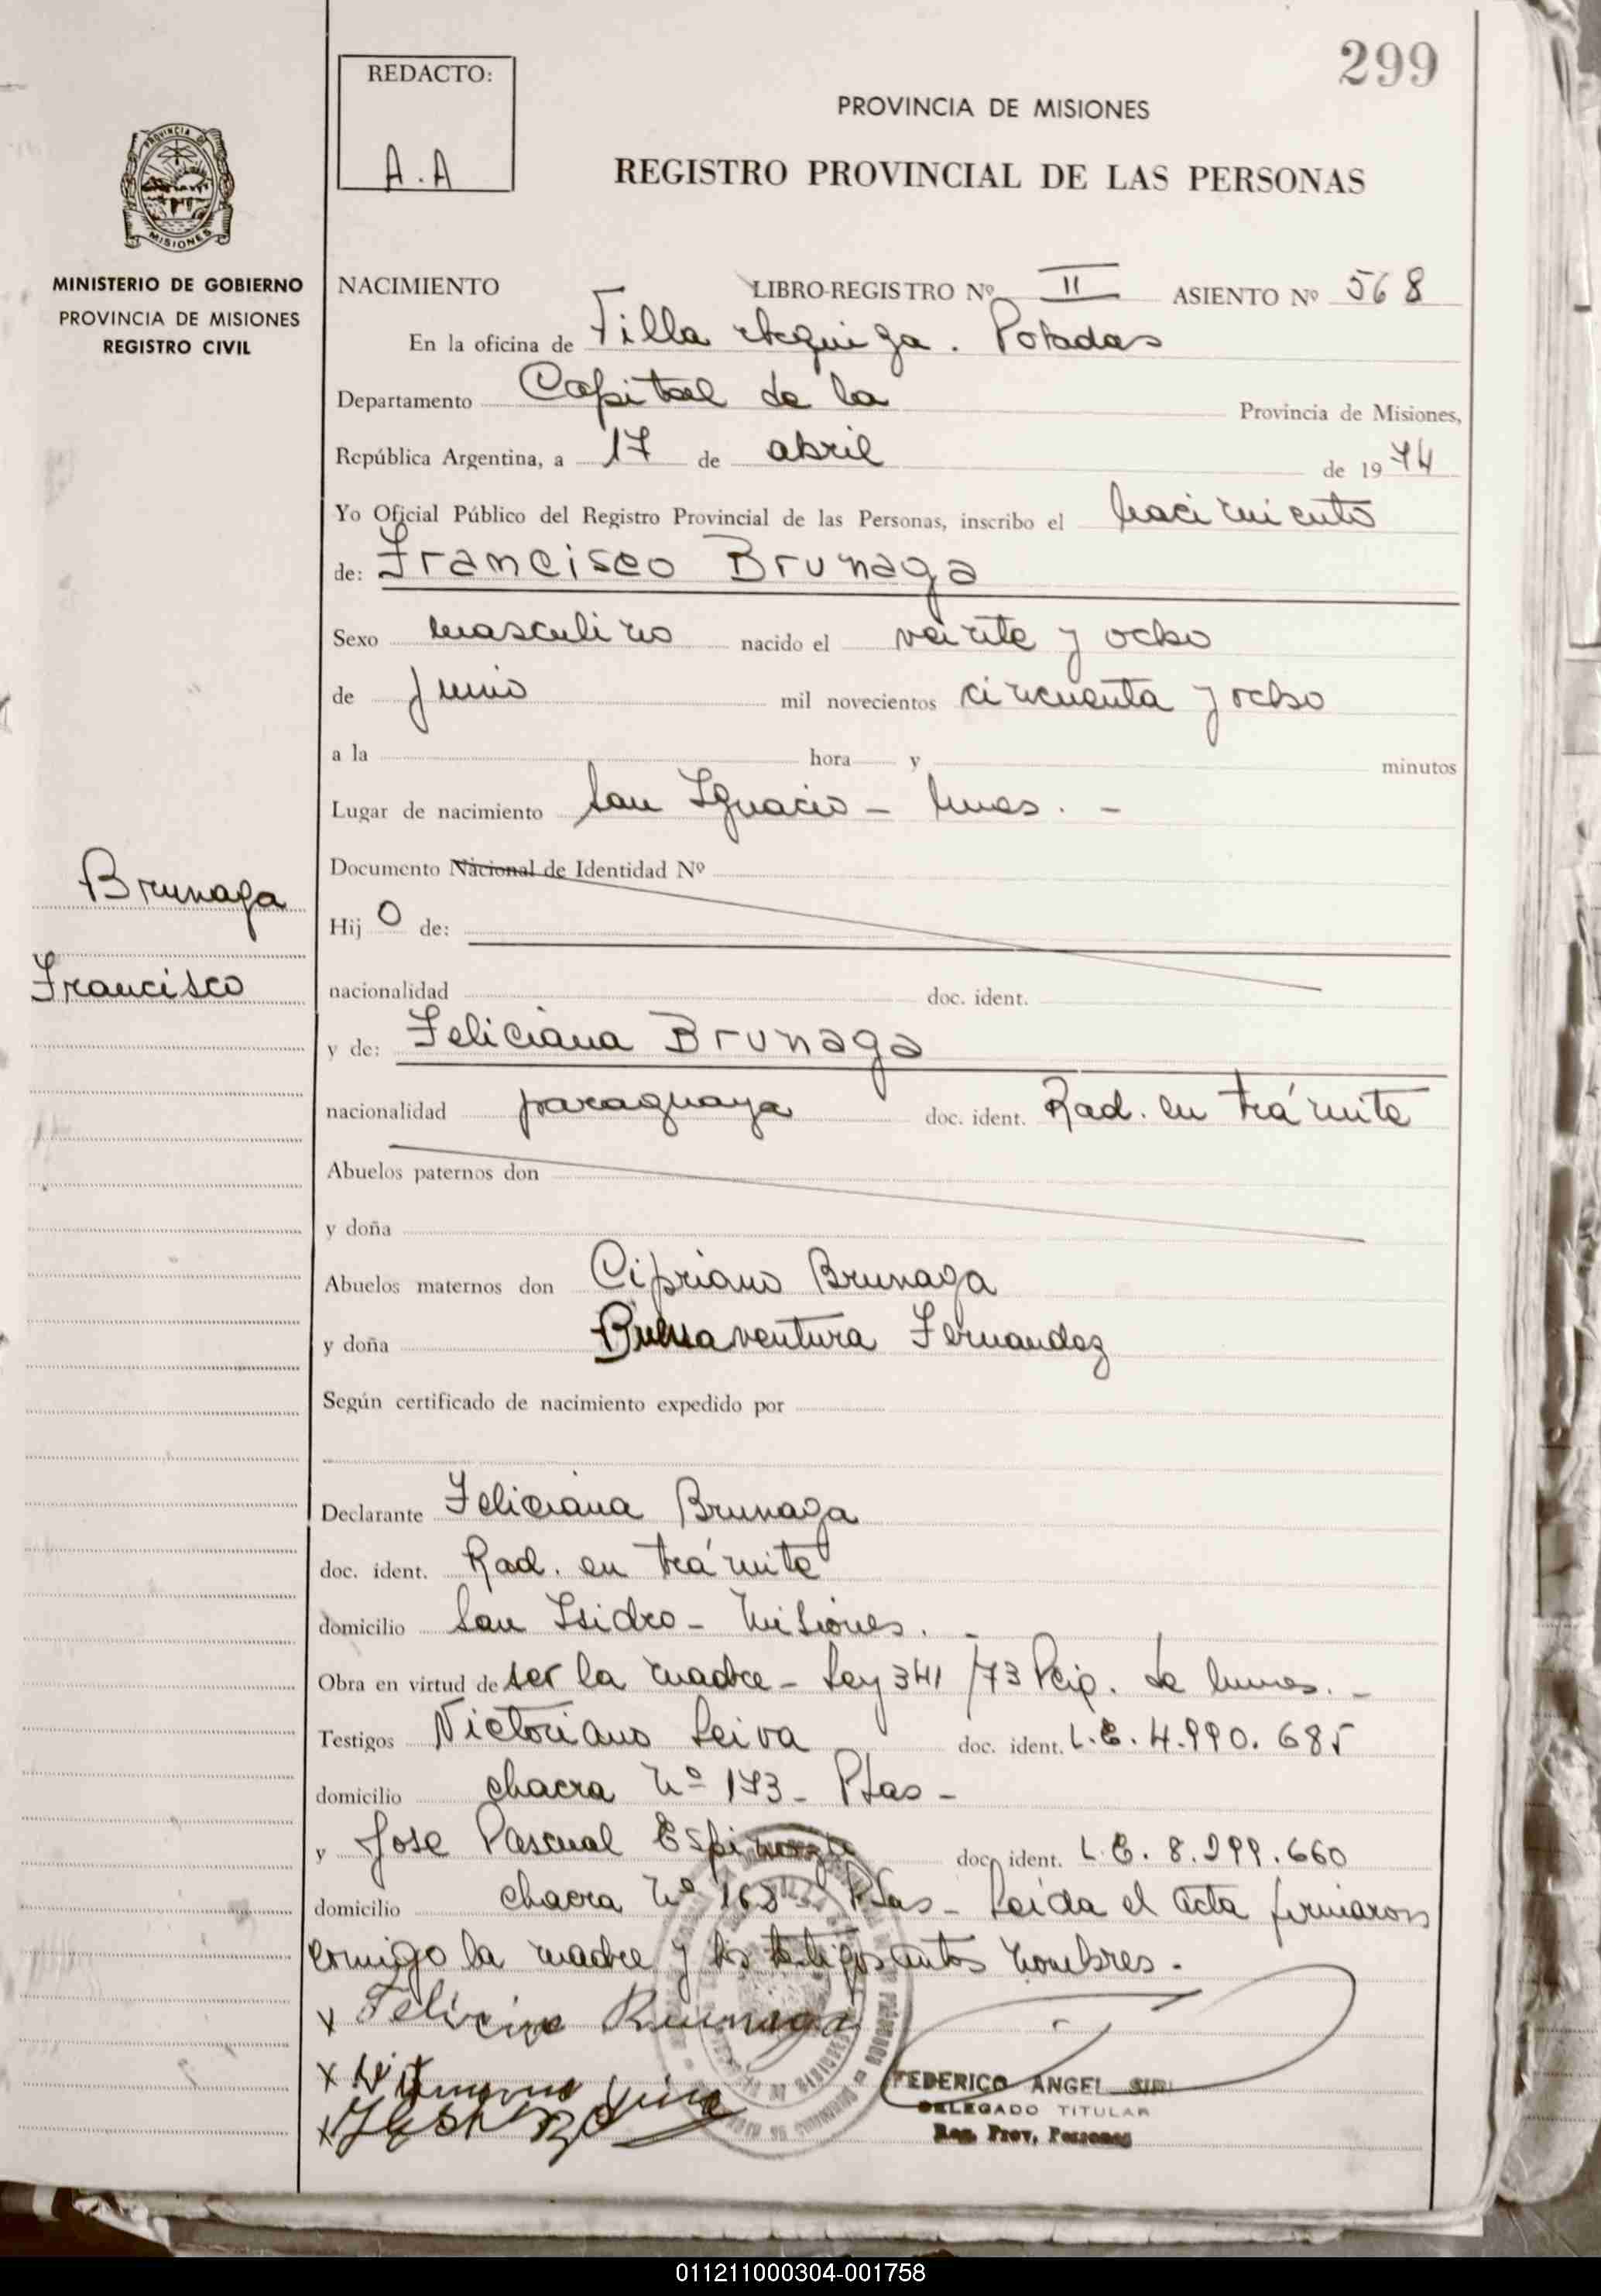 299
REDACTO:
A.A
PROVINCIA DE MISIONES
REGISTRO PROVINCIAL DE LAS PERSONAS
PROVINCIA DE
MISIONES
MINISTERIO DE GOBIERNO
PROVINCIA DE MISIONES
REGISTRO CIVIL
NACIMIENTO LIBRO-REGISTRO Nº II ASIENTO Nº 568
En la oficina de Villa Urquiza. Posadas
Departamento Capital de la Provincia de Misiones,
República Argentina, a 17 de abril de 1974
Yo Oficial Público del Registro Provincial de las Personas, inscribo el nacimiento
de: Francisco Brunaga
Sexo masculino nacido el veinte y ocho
de junio mil novecientos cincuenta y ocho
a la hora y minutos
Lugar de nacimiento San Ignacio - Mnes. -
Documento Nacional de Identidad Nº
Brunaga
Hij o de:
Francisco
nacionalidad doc. ident.
y de: Feliciana Brunaga
nacionalidad paraguaya doc. ident. Rad. en trámite
Abuelos paternos don
y doña
Abuelos maternos don Cipriano Brunaga
y doña Buenaventura Fernandez
Según certificado de nacimiento expedido por
Declarante Feliciana Brunaga
doc. ident. Rad. en trámite
domicilio San Isidro - Misiones. -
Obra en virtud de ser la madre - Ley 341/73 Pcia. de Mnes. -
Testigos Victoriano Leiva doc. ident. L.E. 4.990.685
domicilio chacra Nº 173 - Pdas -
y Jose Pascual doc. ident. L.E. 8.299.660
domicilio chacra Nº 162 Pdas - Leida el acta firmaron
conmigo la madre y los testigos antes nombres.
x Brunaga
x
x
FEDERICO ANGEL SIRI
DELEGADO TITULAR
Reg. Prov. Personas
011211000304-001758